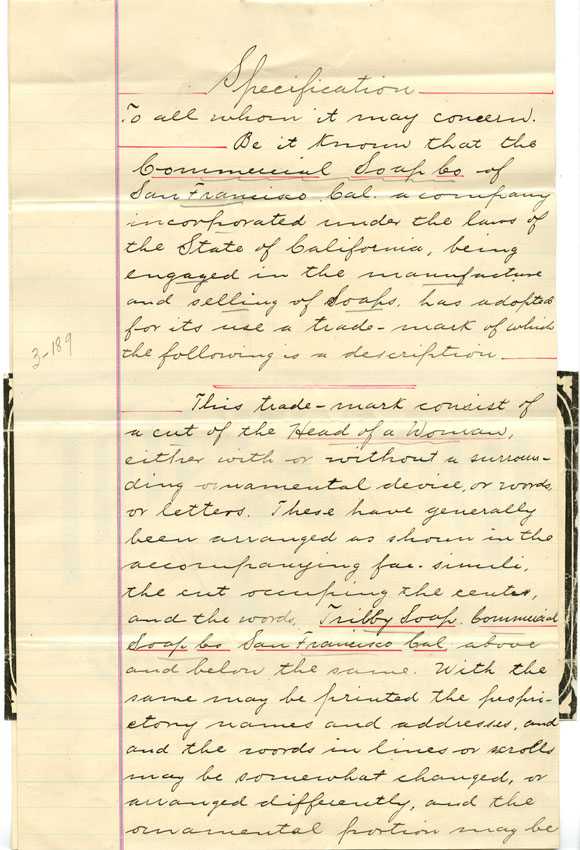 Specification
To all whom it may concern.
Be it Known that the
Commercial Soap Co of
San Francisco, Cal. a company
incorporated under the laws of
the State of California, being
engaged in the manufacture
and selling of Soaps. has adopted
for its use a trade-mark of which
3-189
the following is a description
This trade-mark consist of
a cut of the Head of a Woman,
either with or without a surroun-
ding ornamental device, or words,
or letters. These have generally
been arranged as shown in the
accompanying fac-simili,
the cut occuping the center,
and the words, Trilby Soap. Commercial
Soap Co San Francisco Cal. above
and below the same. With the
same may be printed the propri-
etory names and addresses, and
and the words in lines or scrolls
may be somewhat changed, or
arranged differently, and the
ornamental portion may be